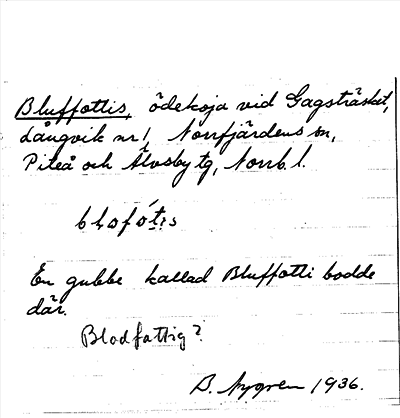 Bluffottis, ödekoja vid Gagsträsket,
Långvik nr 1, Norrfjärdens sn,
Piteå och Älvsby tg, Norrb. l.
blofo´tis
En gubbe kallad Bluffotti bodde
där.
Blodfattig?
B. Nygren 1936.